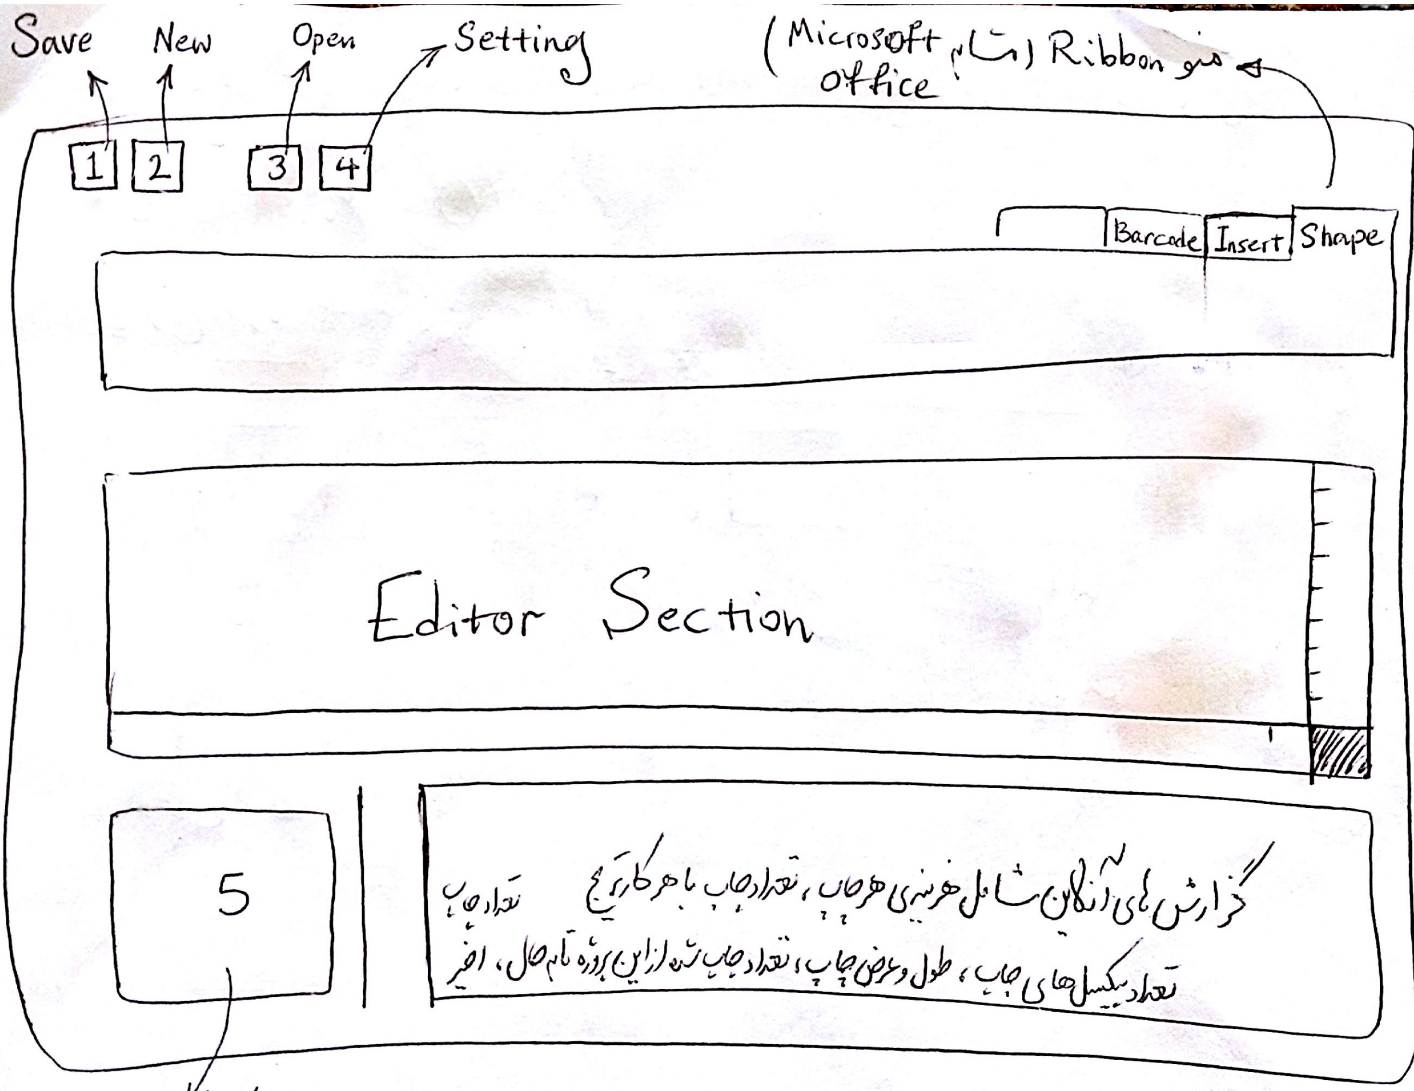 Save New Open Setting
منو Ribbon (مشابه Microsoft Office)
1 2 3 4
Barcode Insert Shape
Editor Section
5
گزارش های آنلاین شامل هزینه‌ی هر چاپ، تعداد چاپ با هر کارتریج تعداد چاپ
تعداد پیکسل‌های چاپ، طول و عرض چاپ، تعداد چاپ شده از این پروژه تا به حال، اخیر